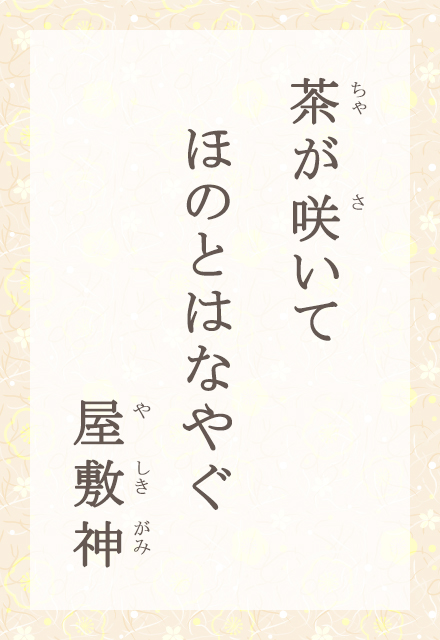 茶が咲いて
ちゃ さ
ほのとはなやぐ
屋敷神
や しき がみ